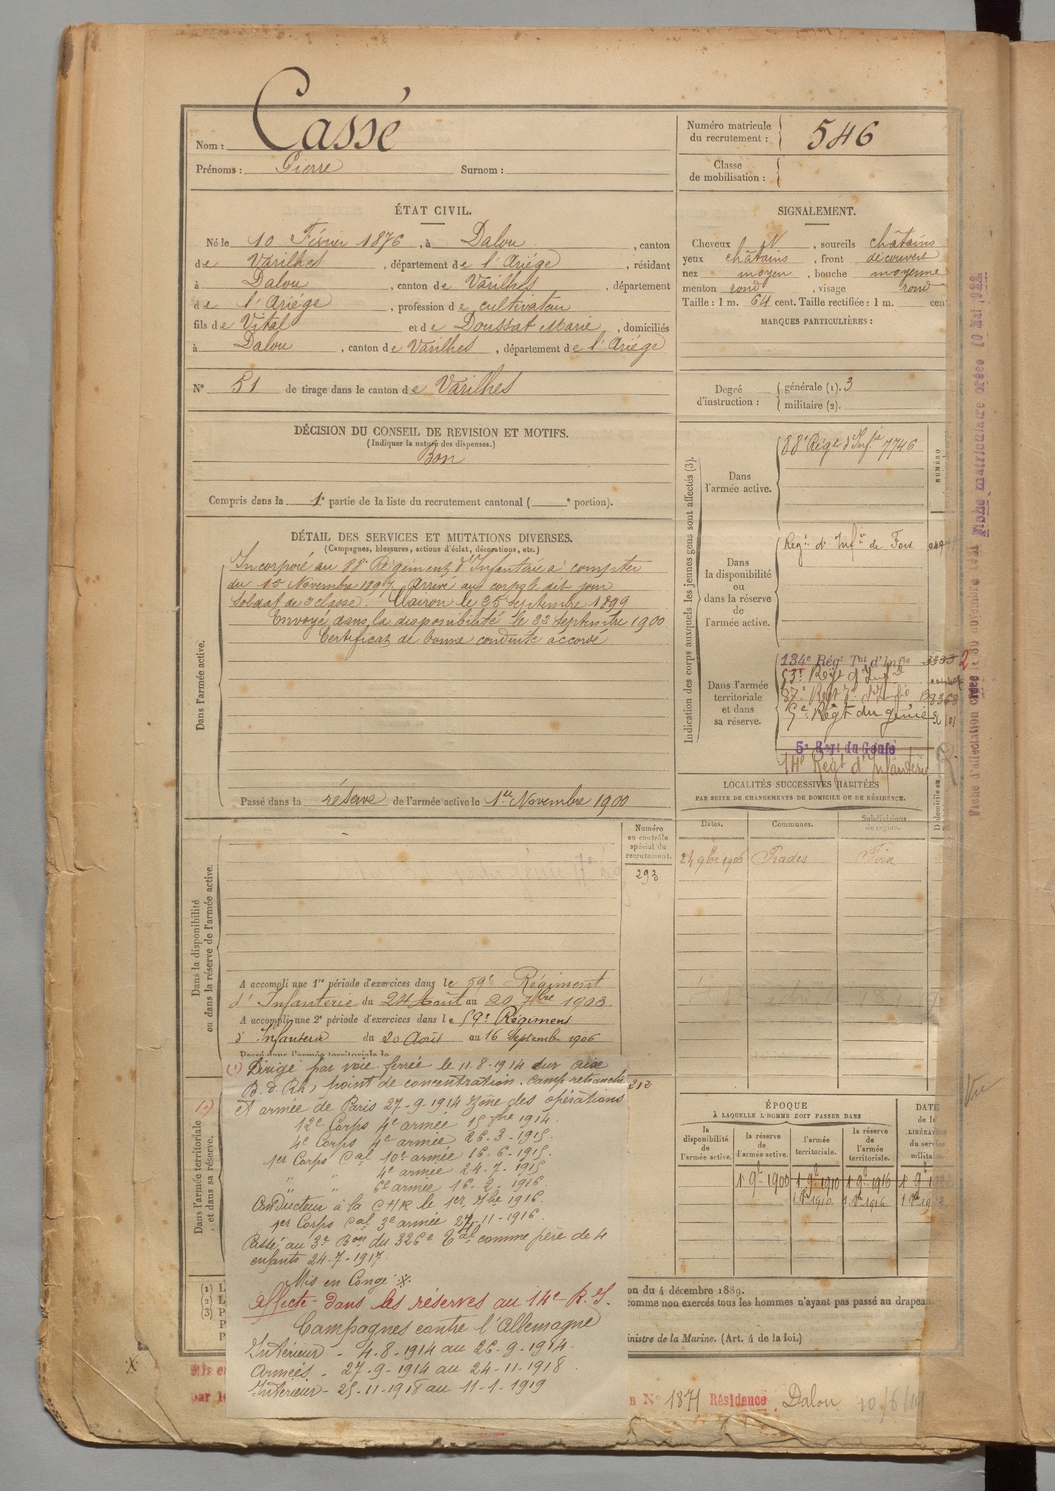 Nom : Cassé
Prénoms : Pierre Surnom :
Numéro matricule
du recrutement : 546
Classe
de mobilisation :
ÉTAT CIVIL.
Né le 10 Février 1876, à Dalou, canton
de Varilhes, département de l'Ariége, résidant
à Dalou, canton de Varilhes, département
de l'Ariége, profession de cultivateur
fils de Vital et de Doussat Marie, domiciliés
à Dalou, canton de Varilhes, département de l'Ariége
N° 51 de tirage dans le canton de Varilhes
SIGNALEMENT.
Cheveux N, sourcils châtains
yeux châtains, front découvert
nez moyen, bouche moyenne
menton rond, visage rond
Taille : 1 m. 64 cent. Taille rectifiée : 1 m. cent
MARQUES PARTICULIÈRES :
Degré
d'instruction :
générale (1). 3
militaire (2).
DÉCISION DU CONSEIL DE REVISION ET MOTIFS.
(Indiquer la nature des dispenses.)
Bon
Compris dans la 1e partie de la liste du recrutement cantonal ( e portion).
DÉTAIL DES SERVICES ET MUTATIONS DIVERSES.
(Campagnes, blessures, actions d'éclat, décorations, etc.)
Dans l'armée active.
Incorporé au 88e Régiment d'Infanterie à compter
du 15 Novembre 1897. Arrivé au corps le dit jour
Soldat de 2e classe. Clairon le 25 septembre 1899
Envoyé dans la disponibilité le 22 Septembre 1900
Certificat de bonne conduite accordé
Passé dans la réserve de l'armée active le 1er Novembre 1900
Indication des corps auxquels les jeunes gens sont affectés (3).
Dans
l'armée active.
88e Régt d'Infie 7746
NUMÉRO
Dans
la disponibilité
ou
dans la réserve
de
l'armée active.
Régt d'Infie de Foix
Dans l'armée
territoriale
et dans
sa réserve.
134e Régt Tal d'Infie
53e Régt d'Infie
57e Régt d'Infie
5e Régt du génie
5e Régt du Génie
14e Régt d'Infanterie
LOCALITÉS SUCCESSIVES HABITÉES
PAR SUITE DE CHANGEMENTS DE DOMICILE OU DE RÉSIDENCE.
Dates. Communes. Subdivisions
de région.
24 9bre 1906 Prades Foix
Dans la disponibilité
ou dans la réserve de l'armée active.
Numéro
au contrôle
spécial du
recrutement.
293
A accompli une 1re période d'exercices dans le 59e Régiment
d'Infanterie du 24 Août au 20 7bre 1903
A accompli une 2e période d'exercices dans le 59e Régiment
d'Infanterie du 20 Août au 16 Septembre 1906
Dans l'armée territoriale
et dans sa réserve.
(1) Dirigé par voie ferrée le 11.8.1914 sur Aix
B. d. Rh, point de concentration. Camp retranché
et armée de Paris 27-9-1914 Zône des opérations
12e Corps 4e armée 15 9bre 1914.
4e Corps 4e armée 26-3-1915.
1er Corps Cal 10e armée 16-6-1915.
" " 4e armée 24-7-1915
" " 6e armée 16-2-1916
Conducteur à la CHR le 1er 7bre 1916.
1er Corps Cal 3e armée 27-11-1916.
Passé au 3e Bon du 326e Tal comme père de 4
enfants 24-7-1917
Mis en Congé
Affecté dans les réserves au 14e R.I.
Campagnes contre l'Allemagne
Intérieur - 4-8-1914 au 26-9-1914.
Armées - 27-9-1914 au 24-11-1918.
Intérieur - 25-11-1918 au 11-1-1919
212
ÉPOQUE
À LAQUELLE L'HOMME DOIT PASSER DANS
la
disponibilité
de
l'armée active.
la réserve
de
l'armée active.
l'armée
territoriale.
la réserve
de
l'armée
territoriale.
DATE
de la
LIBÉRATION
du service
militaire.
1 9b 1900 1 9b 1910 1 9b 1916
1 9b 1910 1 9b 1916
(1)
(2)
(3)
on du 4 décembre 1889.
comme non exercés tous les hommes n'ayant pas passé au drapeau
inistre de la Marine. (Art. 4 de la loi.)
Mis en
par le
n N° 1871 Résidence Dalou
Fiche matriculaire créée 10 Mai 1922
Fiche d'affectation créée le 30 novembre
Vu